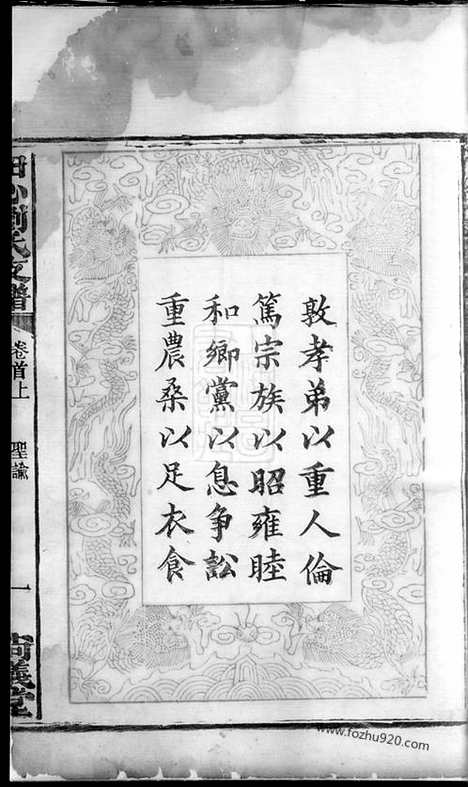 敦孝弟以重人倫
篤宗族以昭雍睦
和鄉黨以息争訟
重農桑以足衣食
田心劉氏支譜
卷首上
聖諭
一
尚義堂
www.fozhu920.com